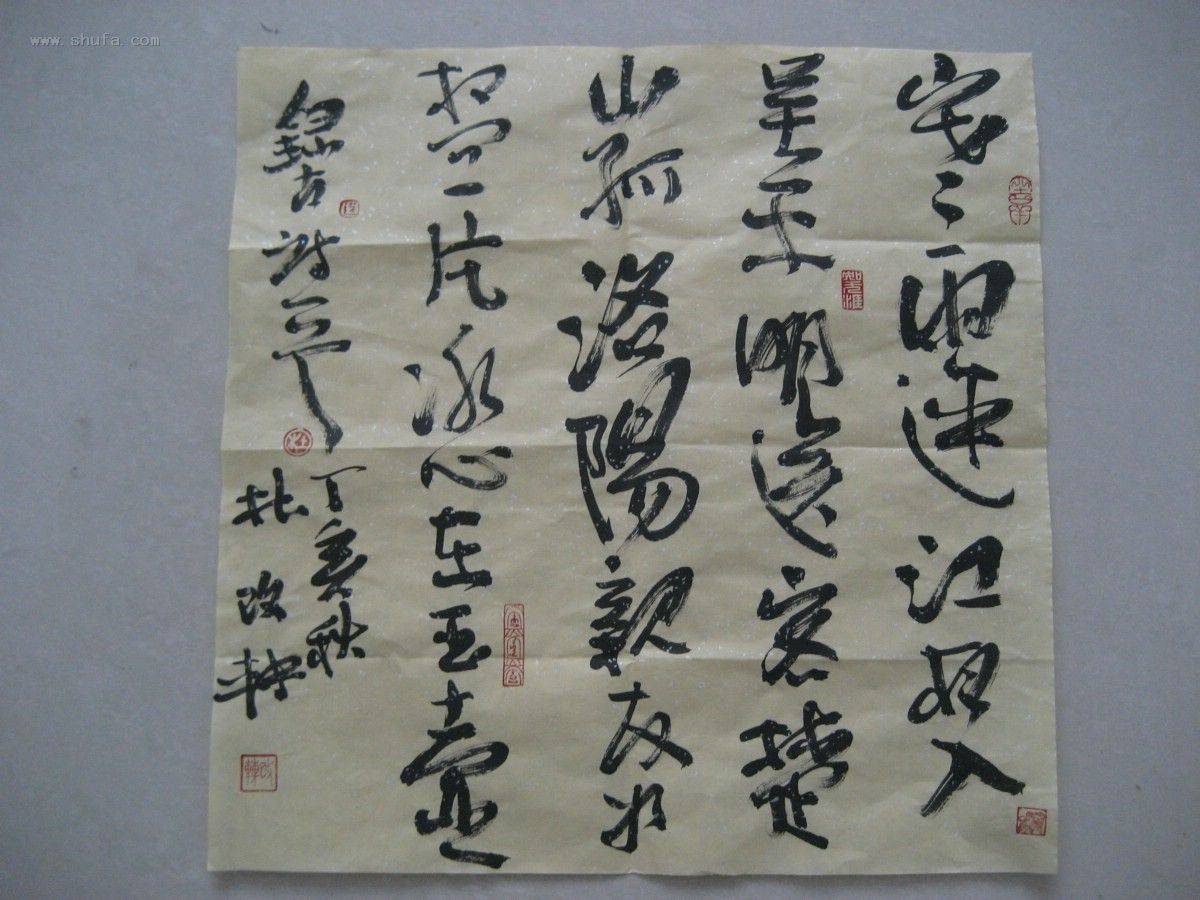 www.shufa.com
寒雨連江夜入
吴平明送客楚
山孤洛陽親友如
相问一片冰心在玉壶
錄古詩一首
丁亥秋
杜改